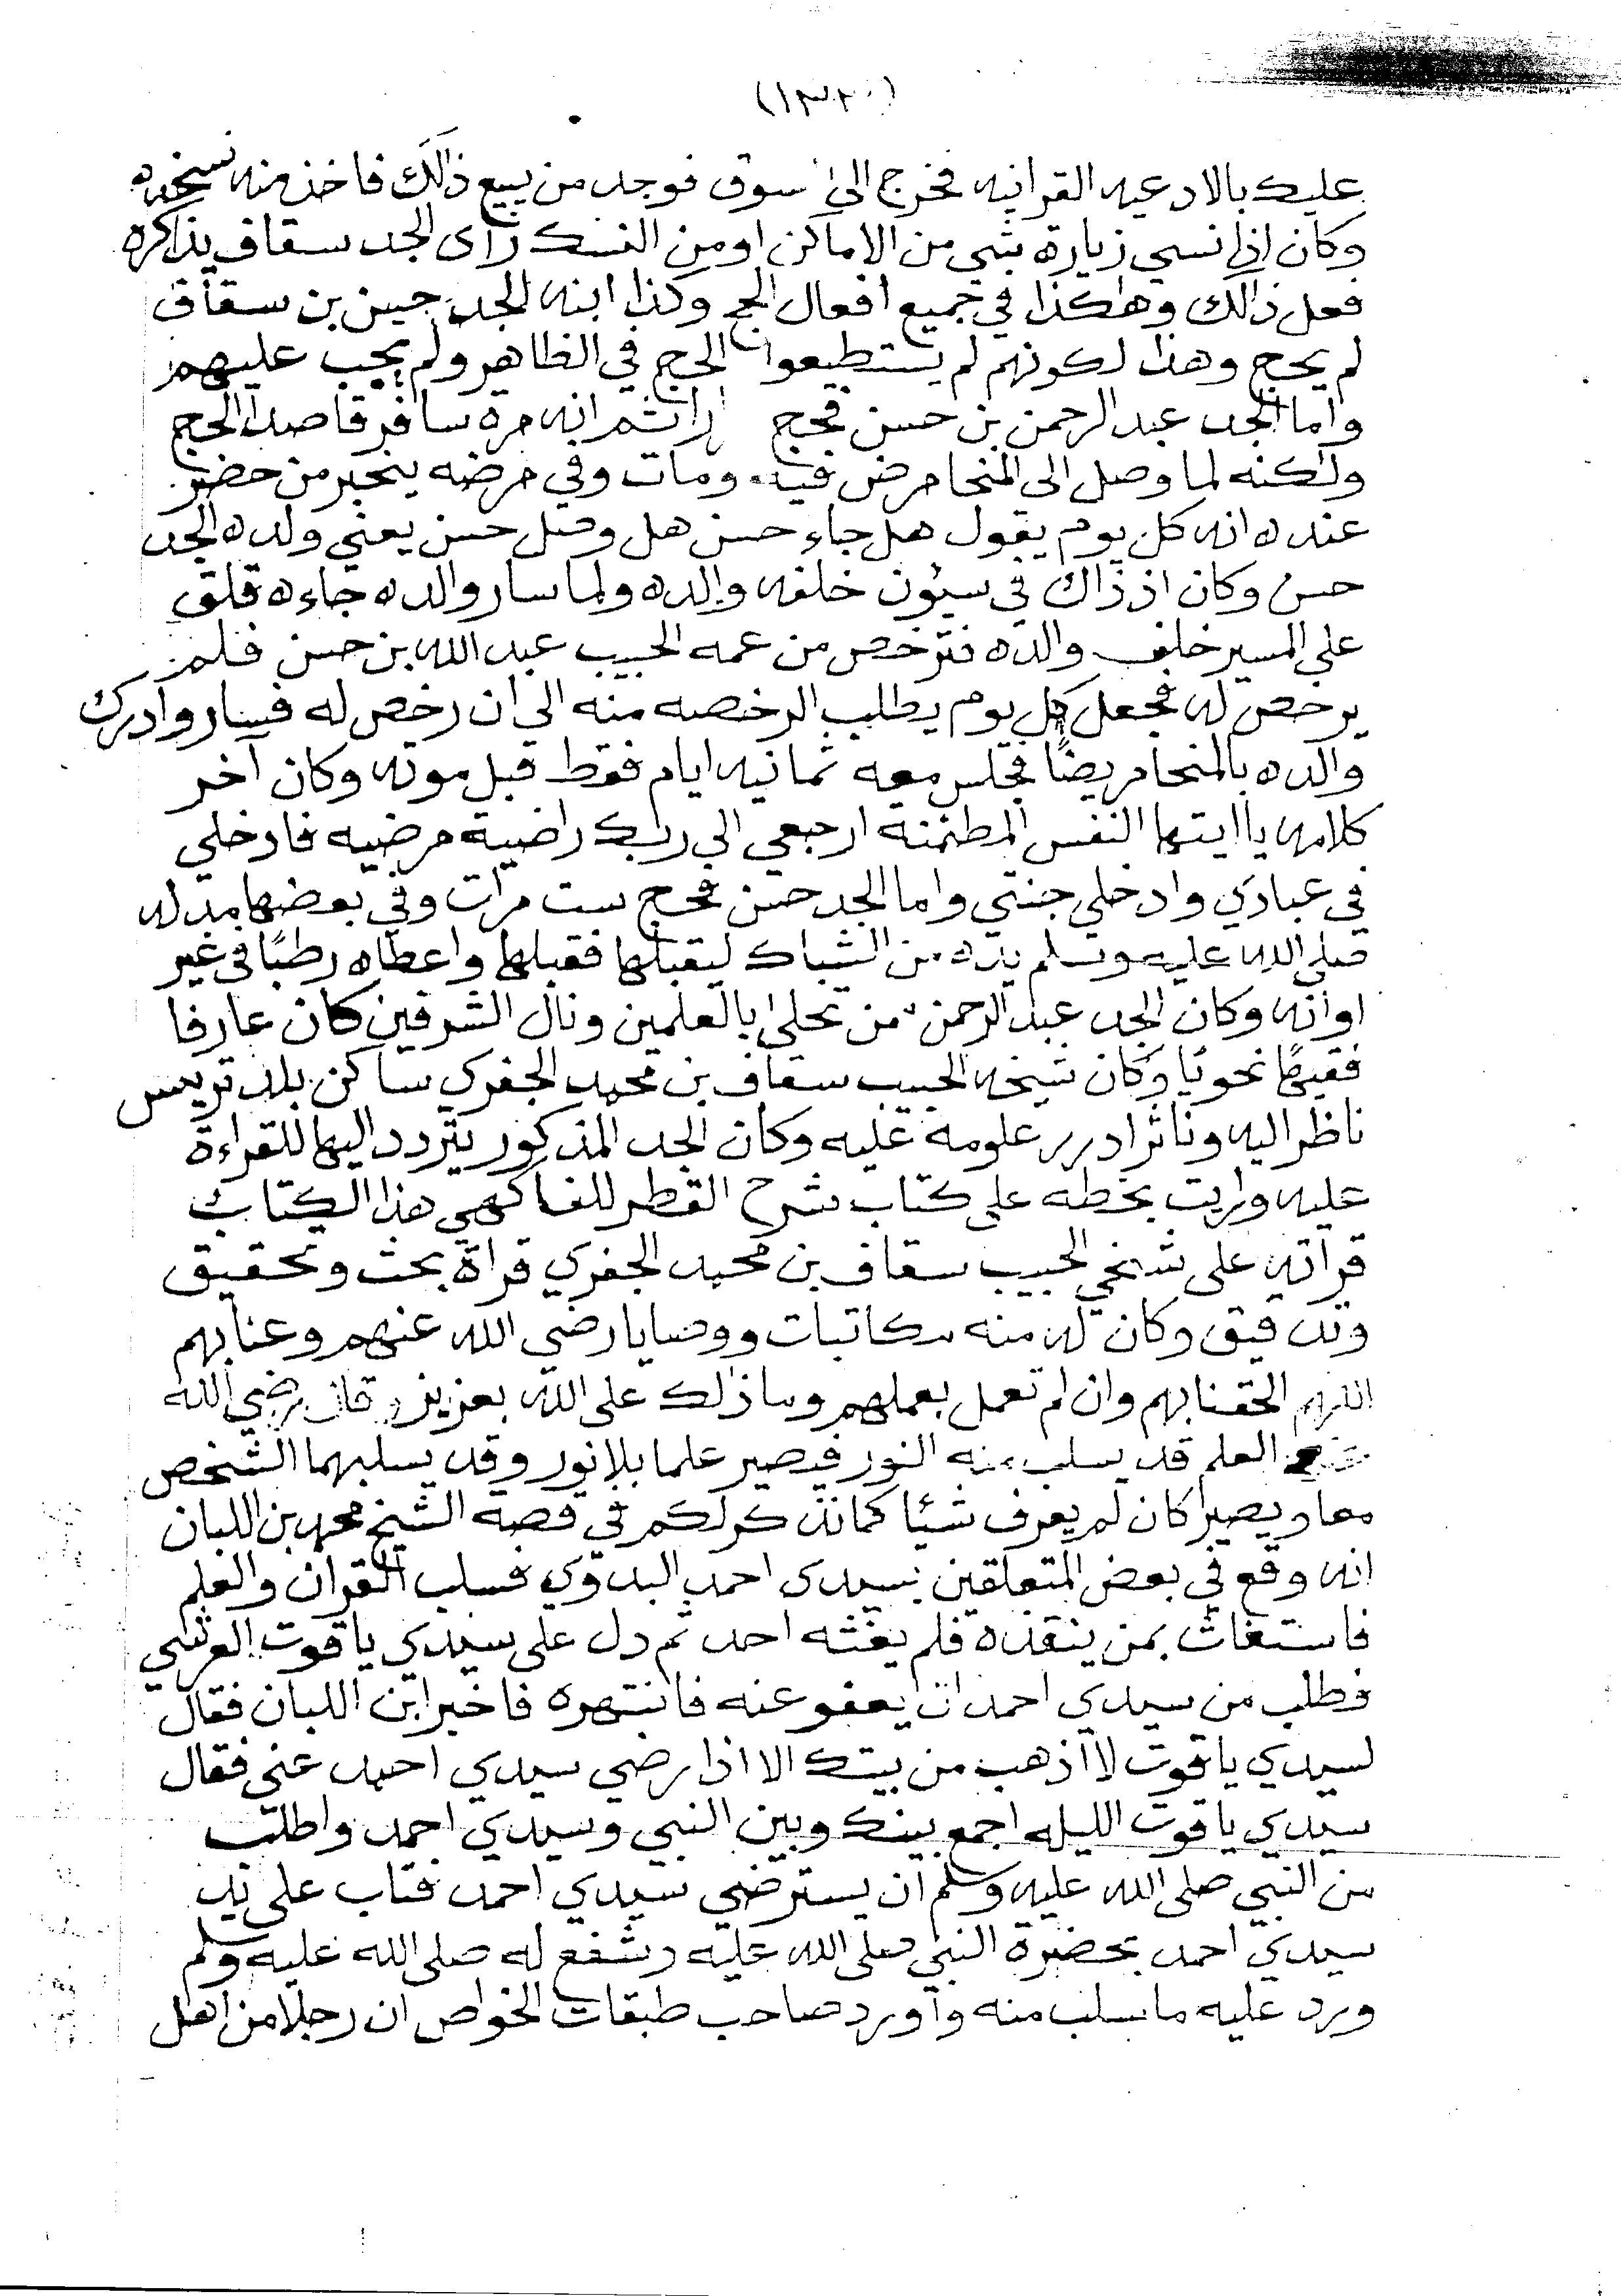 (١٣٢٠)
عليك بالادعيه القرانيه فخرج الى سوق فوجد من يبيع ذالك فاخذ منه نسخه
وكان اذا نسي زيارة شي من الاماكن او من النسك رأى الجد سقاف يذاكره
فعل ذالك وهاكذا في جميع افعال الحج وكذا ابنه الجد حسن بن سقاف
لم يحج وهذا لكونهم لم يستطيعوا الحج في الظاهر ولم يجب عليهم
واما الجد عبد الرحمن بن حسن فحج ثم انه مره سافر قاصدا الحج
ولكنه لما وصل الى المخا مرض فيه ومات وفي مرضه يخبر من حضر
عنده انه كل يوم يقول هل جاء حسن هل وصل حسن يعني ولده الجد
حسن وكان اذ ذاك في سيئون خلفه والده ولما سار والده جاءه قلق
على المسير خلف والده فترخص من عمه الحبيب عبد الله بن حسن فلم
يرخص له فجعل كل يوم يطلب الرخصه منه الى ان رخص له فسار وادرك
والده بالمخا مريضًا فجلس معه ثمانيه ايام فقط قبل موته وكان آخر
كلامه يا ايتها النفس المطئمنه ارجعي الي ربك راضية مرضيه فادخلي
في عبادي وادخلي جنتي واما الجد حسن فحج ست مرات وفي بعضها مد له
صلى الله عليه وسلم يده من الشباك ليقبلها فقبلها واعطاه رطبًا في غير
اوانه وكان الجد عبد الرحمن من تحلى بالعلمين ونال الشرفين كان عارفا
فقيهًا نحويًا وكان شيخه الحبيب سقاف بن محمد الجفري ساكن بلد تريس
ناظرا اليه وناثرا درر علومه عليه وكان الجد المذكور يتردد اليها للقراءة
عليه ورايت بخطه على كتاب شرح القطر للفاكهي هذا الكتاب
قرأته على شيخي الحبيب سقاف بن محمد الجفري قرأة بحث وتحقيق
وتدقيق وكان له منه مكاتبات ووصايا رضي الله عنهم وعنا بهم
اللهم الحقنا بهم وان لم نعمل بعملهم وما ذلك على الله بعزيز قال رضي الله
العلم قد يسلب منه النور فيصير علما بلا نور وقد يسلبهما الشخص
معا ويصير كان لم يعرف شئا كما نذكر لكم في قصة الشيخ محمد بن اللبان
انه وقع في بعض المتعلقين بسيدي احمد البدوي فسلب القران والعلم
فاستغاث بمن ينقذه فلم يغثه احد ثم دل على سيدي ياقوت العرشي
فطلب من سيدي احمد ان يعفو عنه فانتهره فاخبر ابن اللبان فقال
لسيدي ياقوت لا اذهب من بيتك الا اذا رضي سيدي احمد عني فقال
سيدي ياقوت الليله اجمع بينك وبين النبي وسيدي احمد واطلب
من النبي صلى الله عليه وسلم ان يسترضي سيدي احمد فتاب على يد
سيدي احمد بحضرة النبي صلى الله عليه وشفع له صلى الله عليه وسلم
ورد عليه ما سلب منه وأورد صاحب طبقات الخواص ان رجلا من اهل